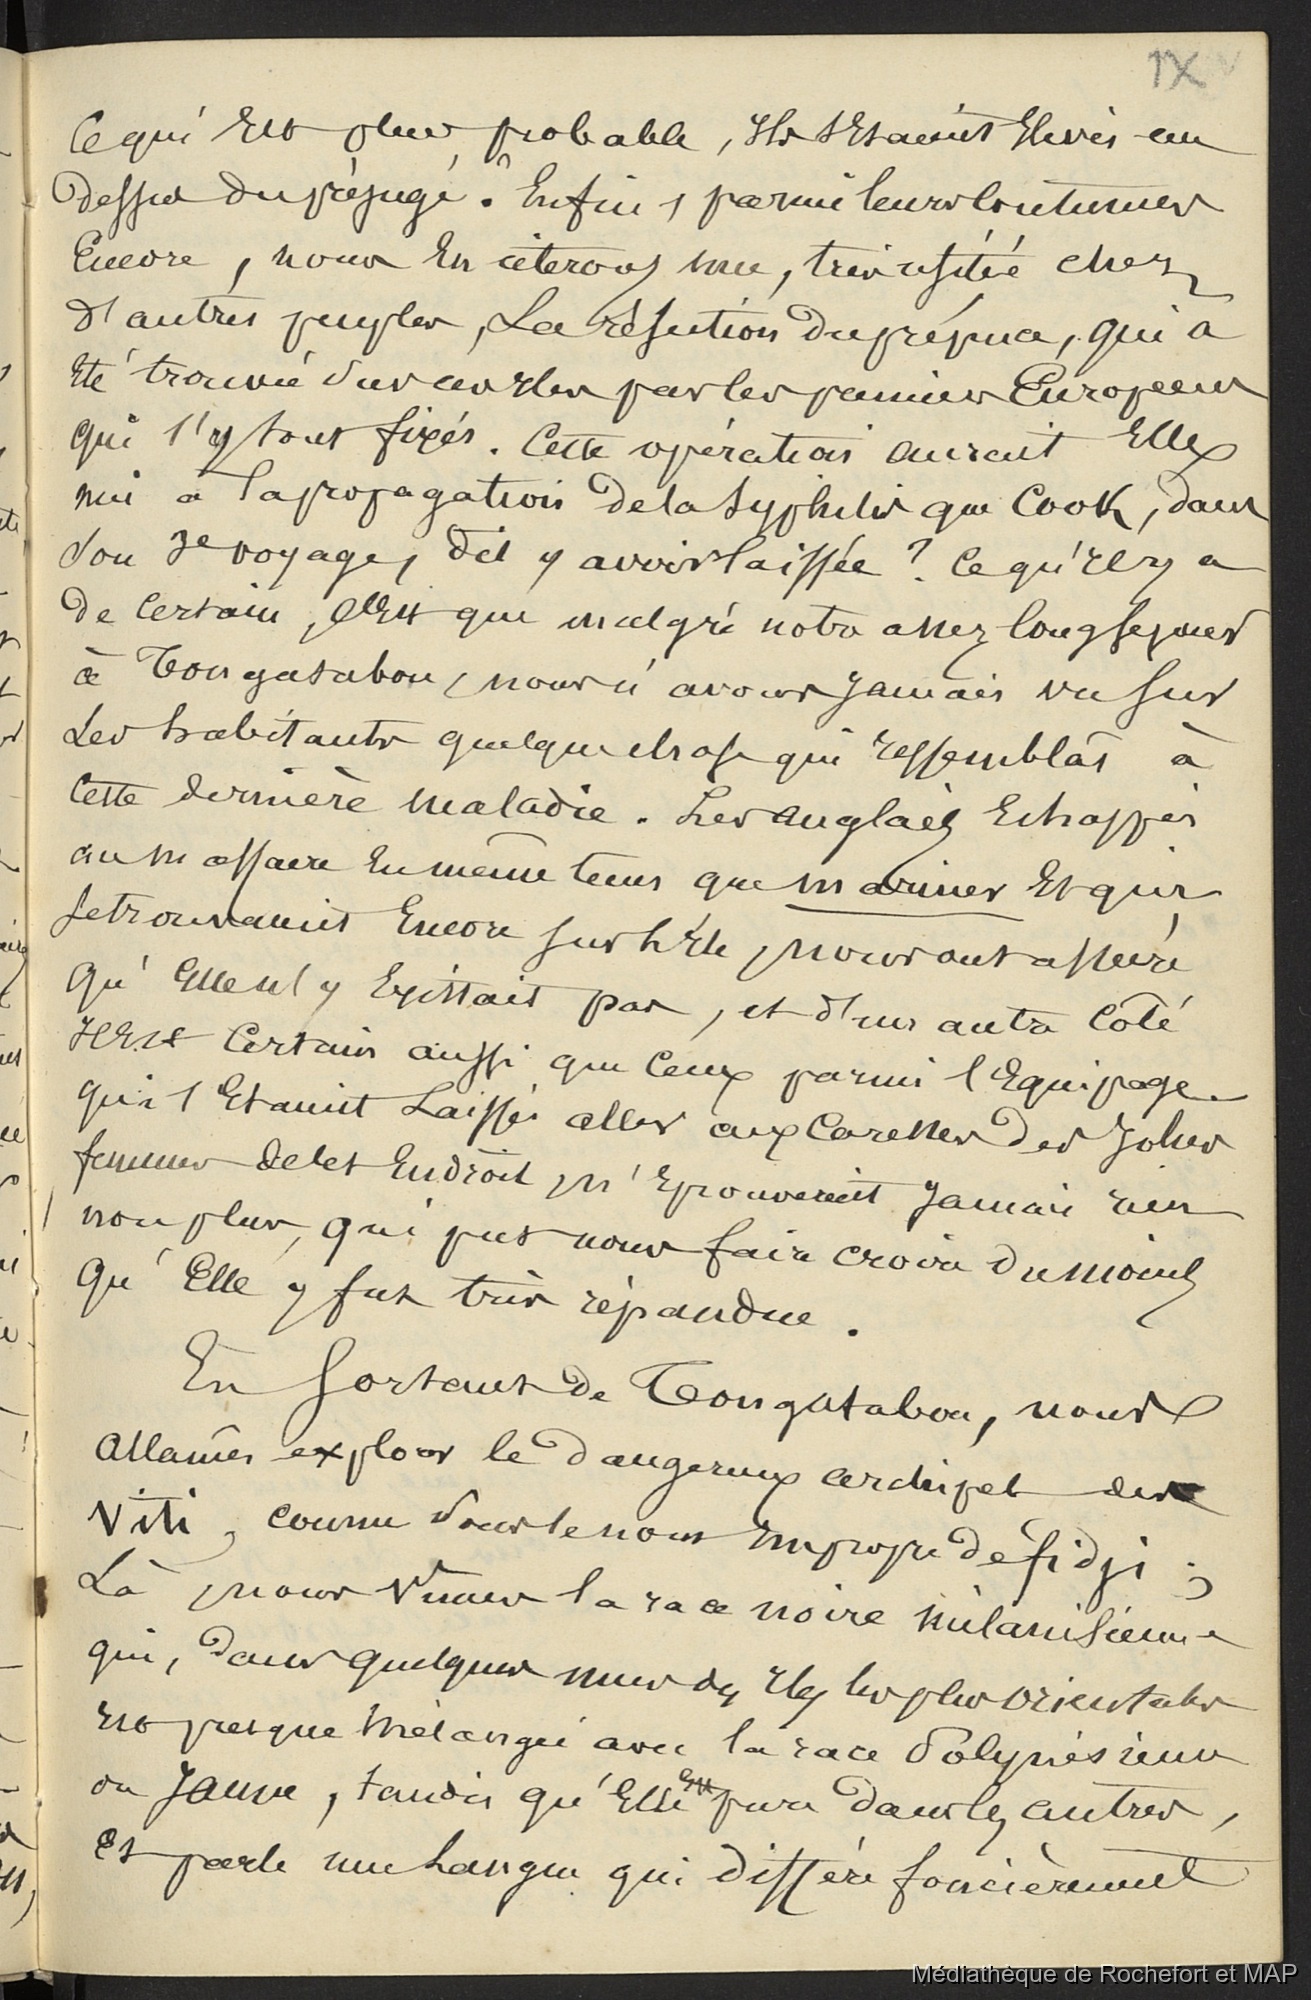 IX
Ce qui Est plus probable, Ils s'Etaient Elevés au
dessus du préjugé. Enfin, parmi leurs Coutumes
Encore, nous En citerons une, très usitée chez
d'autres peuples, La résection du prépuce, qui a
Eté trouvée sur ces Iles par les premiers Européens
qui s'y sont fixés. Cette opération aurait Elle
nui à la propagation de la Syphilis que Cook, dans
son 3e voyage, dit y avoir laissée ? Ce qu'Il y a
de Certain, C'Est que malgré notre assez long séjour
à Tongatabou, nous n'avons Jamais vu sur
Les habitants quelque chose qui ressemblât à
Cette dernière maladie. Les anglais Echappés
au massacre En même tems que Mariner Et qui
se trouvaient Encore sur L'Ile, nous ont assuré
qu'Elle n'y Existait pas, et d'un autre Côté
Il Est Certain aussi que Ceux parmi l'Equipage
qui s'Etaient Laissés aller aux Caresses des Jolies
femmes de Cet Endroit, n'Eprouvèrent Jamais rien
non plus, qui put nous faire croire du moins
qu'Elle y fut très répandue.
En Sortant de Tongatabou, nous
allames explorer le dangereux archipel des
Viti, connu sous le nom Impropre de fidji ;
Là, nous vimes la race noire mélanisienne
qui, dans quelques unes des Iles les plus orientales
Est presque mélangée avec la race Polynésienne
ou Jaune, tandis qu'Elle Est pure dans les autres,
Et parle une Langue qui diffère foncièrement
Médiathèque de Rochefort et MAP